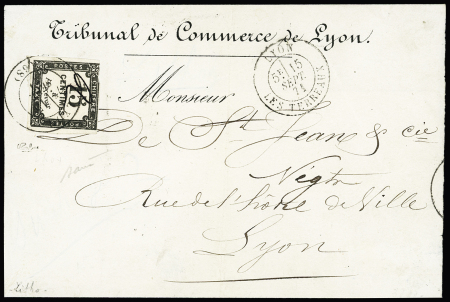 Tribunal de Commerce de Lyon.
LYON
5E 15
SEPT.
71
LES TERREAUX
CENTIMES
15
POSTES
Monsieur
de St Jean & cie
Négts
Rue de l'hôtel de Ville
Lyon